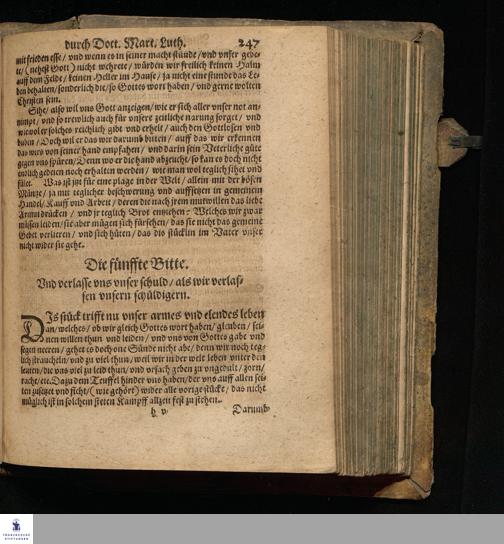 durch Doct. Mart. Luth. 247
mit frieden esse/ vnd wenn es in seiner macht stünde/ vnd vnser gebe-
te/ (nehest Gott) nicht wehrete/ würden wir freilich keinen Halm
auff dem Felde/ keinen Heller im Hause/ ja nicht eine stunde das Le-
ben behalten/ sonderlich die/ so Gottes wort haben/ vnd gerne wolten
Christen sein.
Sihe/ also wil vns Gott anzeigen/ wie er sich aller vnser not an-
nimpt/ vnd so trewlich auch für vnsere zeitliche narung sorget/ vnd
wiewol er solches reichlich gibt vnd erhelt/ auch den Gottlosen vnd
buben/ Doch wil er das wir darumb bitten/ auff das wir erkennen
das wirs von seiner hand empfahen/ vnd darin sein Veterliche güte
gegen vns spüren/ Denn wo er die hand abzeucht/ so kan es doch nicht
endlich gedeien noch erhalten werden/ wie man wol teglich sihet vnd
fület. Was ist jtzt für eine plage in der Welt/ allein mit der bösen
Müntze/ ja mit teglicher beschwerung vnd auffsetzen in gemeinem
Handel/ Kauff vnd Arbeit/ deren die nach jrem mutwillen das liebe
Armut drücken/ vnd jr teglich Brot entziehen: Welches wir zwar
müssen leiden/ sie aber mügen sich fürsehen/ das sie nicht das gemeine
Gebet verlieren/ vnd sich hüten/ das dis stücklin im Vater vnser
nicht wider sie gehe.
Die fünffte Bitte.
Vnd verlasse vns vnser schuld/ als wir verlas-
sen vnsern schüldigern.
DIs stück trifft nu vnser armes vnd elendes leben
an/ welches/ ob wir gleich Gottes wort haben/ gleuben/ sei-
nen willen thun vnd leiden/ vnd vns von Gottes gabe vnd
segen neeren/ gehet es doch one Sünde nicht abe/ denn wir noch teg-
lich straucheln/ vnd zu viel thun/ weil wir in der welt leben vnter den
leuten/ die vns viel zu leid thun/ vnd vrsach geben zu vngedult/ zorn/
rache/ etc. Dazu dem Teuffel hinder vns haben/ der vns auff allen sei-
ten zusetzet vnd ficht/ (wie gehört) wider alle vorige stücke/ das nicht
müglich ist in solchem steten Kampff allzeit fest zu stehen.
h v Darumb
FRANCKESCHE
STIFTUNGEN